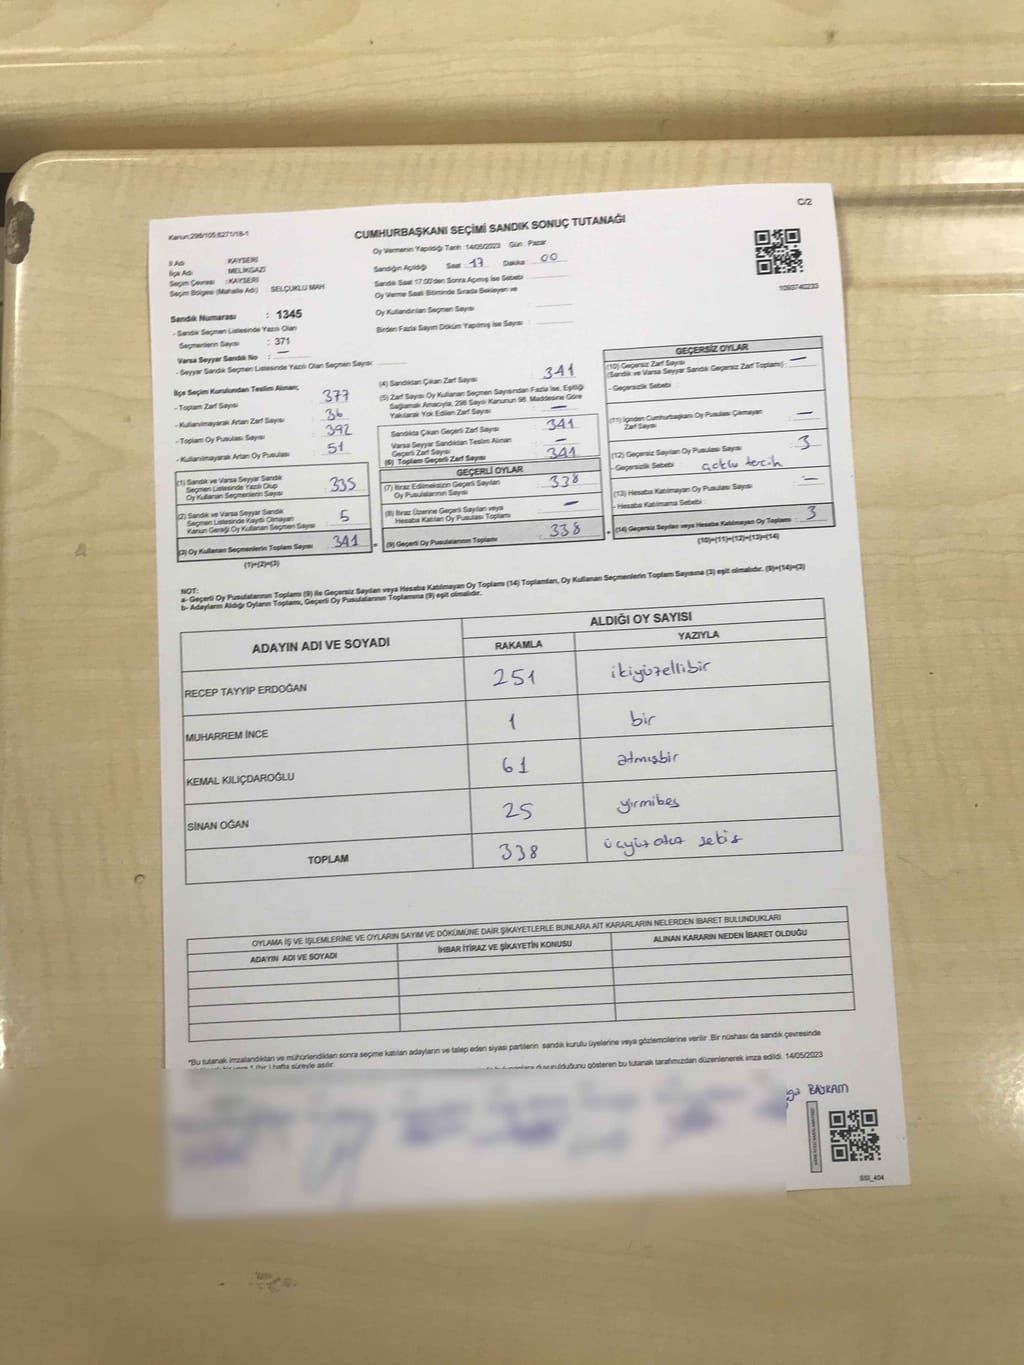 C/2
Kanun;298/105;6271/18-1
CUMHURBAŞKANI SEÇİMİ SANDIK SONUÇ TUTANAĞI
Oy Vermenin Yapıldığı Tarih :14/05/2023 Gün : Pazar
İl Adı : KAYSERİ
İlçe Adı : MELİKGAZİ
Seçim Çevresi : KAYSERİ
Seçim Bölgesi (Mahalle Adı) : SELÇUKLU MAH.
Sandığın Açıldığı Saat : 17 Dakika : 00
Sandık Saat 17:00'den Sonra Açılmış İse Sebebi :
Oy Verme Saati Bitiminde Sırada Bekleyen ve
Oy Kullandırılan Seçmen Sayısı :
Birden Fazla Sayım Döküm Yapılmış İse Sayısı :
1093740233
Sandık Numarası : 1345
- Sandık Seçmen Listesinde Yazılı Olan
Seçmenlerin Sayısı : 371
Varsa Seyyar Sandık No : —
- Seyyar Sandık Seçmen Listesinde Yazılı Olan Seçmen Sayısı:
İlçe Seçim Kurulundan Teslim Alınan;
- Toplam Zarf Sayısı : 377
- Kullanılmayarak Artan Zarf Sayısı : 36
- Toplam Oy Pusulası Sayısı : 392
- Kullanılmayarak Artan Oy Pusulası : 51
(1) Sandık ve Varsa Seyyar Sandık
Seçmen Listesinde Yazılı Olup
Oy Kullanan Seçmenlerin Sayısı : 335
(2) Sandık ve Varsa Seyyar Sandık
Seçmen Listesinde Kaydı Olmayan
Kanun Gereği Oy Kullanan Seçmen Sayısı : 5
(3) Oy Kullanan Seçmenlerin Toplam Sayısı : 341
(1)+(2)=(3)
(4) Sandıktan Çıkan Zarf Sayısı : 341
(5) Zarf Sayısı Oy Kullanan Seçmen Sayısından Fazla İse, Eşitliği
Sağlamak Amacıyla, 298 Sayılı Kanunun 98. Maddesine Göre
Yakılarak Yok Edilen Zarf Sayısı : —
Sandıkta Çıkan Geçerli Zarf Sayısı : 341
Varsa Seyyar Sandıktan Teslim Alınan
Geçerli Zarf Sayısı : —
(6) Toplam Geçerli Zarf Sayısı : 341
GEÇERLİ OYLAR
(7) İtiraz Edilmeksizin Geçerli Sayılan
Oy Pusulalarının Sayısı : 338
(8) İtiraz Üzerine Geçerli Sayılan veya
Hesaba Katılan Oy Pusulası Toplamı : —
= (9) Geçerli Oy Pusulalarının Toplamı : 338
GEÇERSİZ OYLAR
(10) Geçersiz Zarf Sayısı
(Sandık ve Varsa Seyyar Sandık Geçersiz Zarf Toplamı) : —
- Geçersizlik Sebebi :
(11) İçinden Cumhurbaşkanı Oy Pusulası Çıkmayan
Zarf Sayısı : —
(12) Geçersiz Sayılan Oy Pusulası Sayısı : 3
-Geçersizlik Sebebi : çoklu tercih
(13) Hesaba Katılmayan Oy Pusulası Sayısı : —
- Hesaba Katılmama Sebebi :
+ (14) Geçersiz Sayılan veya Hesaba Katılmayan Oy Toplamı : 3
(10)+(11)+(12)+(13)=(14)
NOT:
a- Geçerli Oy Pusulalarının Toplamı (9) ile Geçersiz Sayılan veya Hesaba Katılmayan Oy Toplamı (14) Toplamları, Oy Kullanan Seçmenlerin Toplam Sayısına (3) eşit olmalıdır. (9)+(14)=(3)
b- Adayların Aldığı Oyların Toplamı, Geçerli Oy Pusulalarının Toplamına (9) eşit olmalıdır.
ADAYIN ADI VE SOYADI ALDIĞI OY SAYISI
RAKAMLA YAZIYLA
RECEP TAYYİP ERDOĞAN 251 ikiyüzellibir
MUHARREM İNCE 1 bir
KEMAL KILIÇDAROĞLU 61 atmışbir
SİNAN OĞAN 25 yirmibeş
TOPLAM 338 üçyüz otuz sekiz
OYLAMA İŞ VE İŞLEMLERİNE VE OYLARIN SAYIM VE DÖKÜMÜNE DAİR ŞİKAYETLERLE BUNLARA AİT KARARLARIN NELERDEN İBARET BULUNDUKLARI
ADAYIN ADI VE SOYADI İHBAR İTİRAZ VE ŞİKAYETİN KONUSU ALINAN KARARIN NEDEN İBARET OLDUĞU
*Bu tutanak imzalandıktan ve mühürlendikten sonra seçime katılan adayların ve talep eden siyasi partilerin sandık kurulu üyelerine veya gözlemcilerine verilir. Bir nüshası da sandık çevresinde
1 (bir) hafta süreyle asılır. duyurulduğunu gösteren bu tutanak tarafımızdan düzenlenerek imza edildi. 14/05/2023
BAYRAM
SSI_404